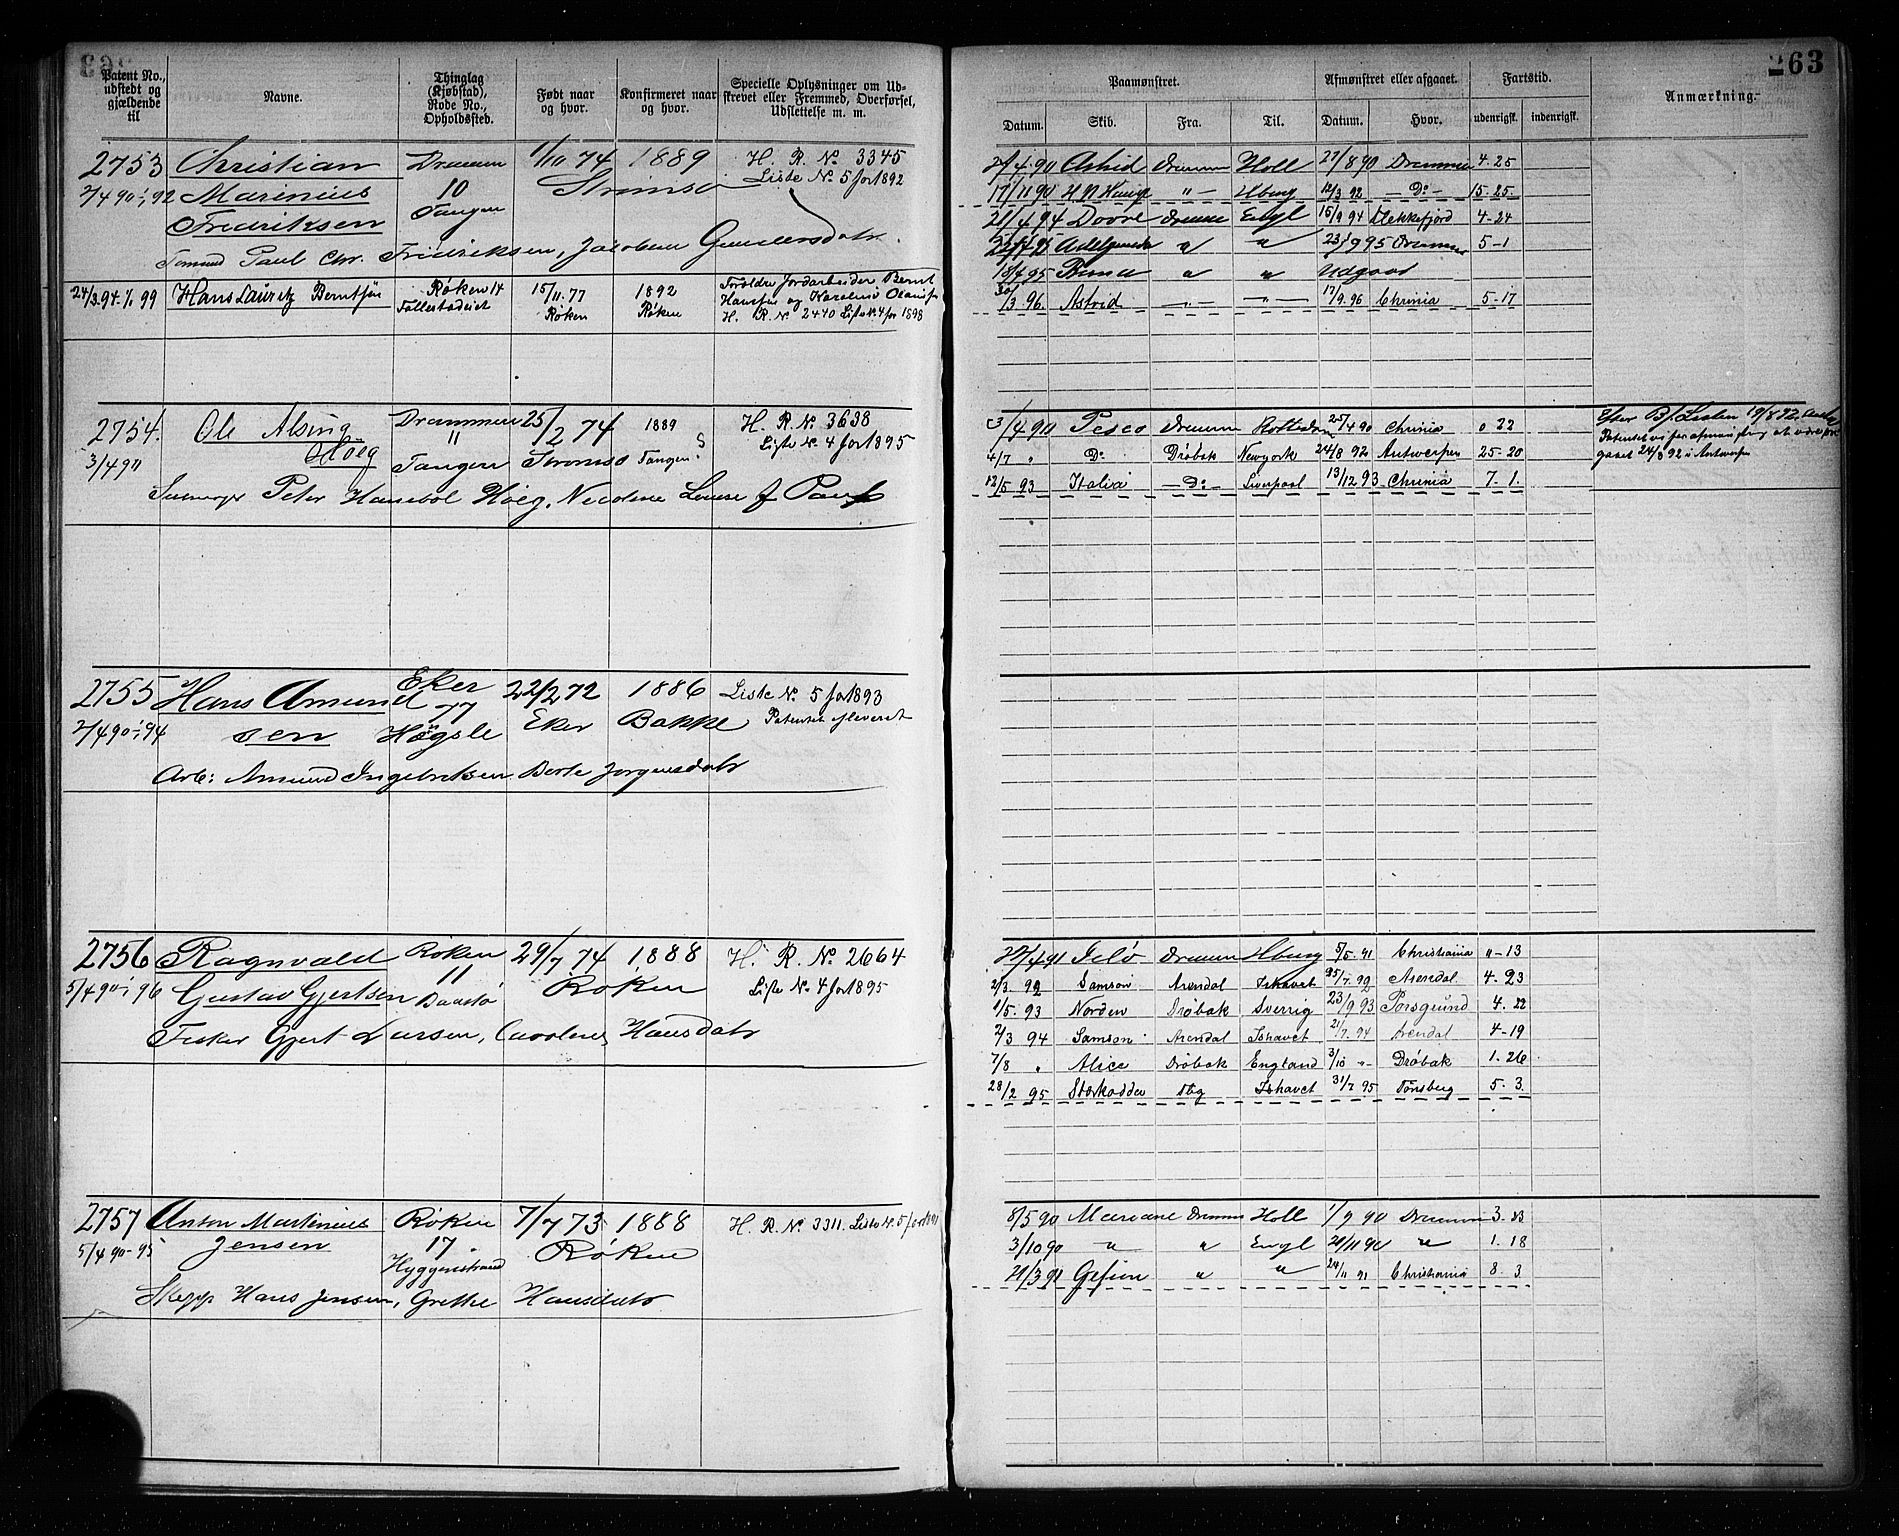 263
Patent No., udstedt og gjældende til
Navne.
Thinglag (Kjøbstad), Rode No., Opholdssted.
Født naar og hvor.
Konfirmeret naar og hvor.
Specielle Oplysninger om Udskrevet eller Fremmed, Overførsel, Udslettelse m. m.
Paamønstret.
Afmønstret eller afgaaet.
Fartstid.
Anmærkning.
Datum. Skib. Fra. Til. Datum. Hvor. udenrigsk. indenrigsk.
2753 Christian Drammen 1/10 74 1889 H. R. No 3345
2/4 90-1/1 92 Marinius 10 Strømsø Liste No 5 for 1892
Fredriksen Tangen
Tømmd Paul Chr. Fredriksen, Jacobine Gundersdatr.
24/3.94-1/1 99 Hans Lauritz Berntsen Røken 14 15/11.77 1892 Forældre Jordarbeider Bernt
Røken Røken Hansen og Karoline
H. R. No 2440 Liste No 4 for 1898
2/4.90 Astrid Drammen Holl 27/8 90 Drammen 4-25
17/11 90 Hburg 12/3 92 -Do- 15-25
21/4 94 Dovre Dramm Engl 15/9 94 Flekkefjord 4-24
" " 23/9 95 Drammen 5-1
18/4 95 " " Udgaat
30/3.96. Astrid -"- -"- 17/9.96 Chrinia 5-17
2754. Ole Alsing Drammen 25/2 74 1889 H. R. No 3638
3/4 90 Høeg 11 Tangen Strømsø Tangen Liste No 4 for 1895
Peter Høeg, Nicoline
3/4 90 Pesco Dramm Rotterdam 25/4 90 Chrinia 0 22
4/7 " Do Drøbak Newyork 24/8 92 Antwerpen 25-20
12/5 93 Italia -Do- Liverpool 13/12 93 Chrinia 7. 1.
gaaet 24/8 92 i Antwerpen
2755 Hans Amund Eker 22/2 72 1886 Liste No 5 for 1893
2/4 90-1/1 94 sen 77 Høgsle Eker Bakke Patentet afleveret
Arb: Amund Ingebretsen Berte Jørgensdatr
2756 Ragnvald Røken 29/7 74 1888 H. R. No 2664
5/4 90-1/1 96 Gustav Gjertsen 11 Røken Liste No 4 for 1895
Fisker Gjert Larsen, Caroline Hansdatr
Dramm Hburg 5/5. 91 Christiania "-13
2/3. 92 Samson Arendal Ishavet 25/7. 92 Arendal 4-23
1/5. 93 Norden Drøbak Sverrig 23/9 93 Porsgrund 4. 22
2/3 94 Samson Arendal Ishavet 21/7. 94 Arendal 4-19
7/8 " Alice Drøbak England 3/10 -"- Drøbak 1. 26
28/2 95 Stærkodder Tbg Ishavet 31/7 95 Tønsberg 5. 3.
2757 Anton Martinius Røken 7/7 73 1888 H. R. No 3311. Liste No 5 for 1891
5/4 90-95 Jensen 17 Hyggenstrand Røken
Skipp Hans Jensen, Grethe Hansdatr
8/5 90 Mariane Dramm Holl 1/9 90 Dramm 3. 23
3/10 90 " " Engl 21/11 90 " 1. 18
21/3 91 Gefion " " 24/11 91 Christiania 8. 3